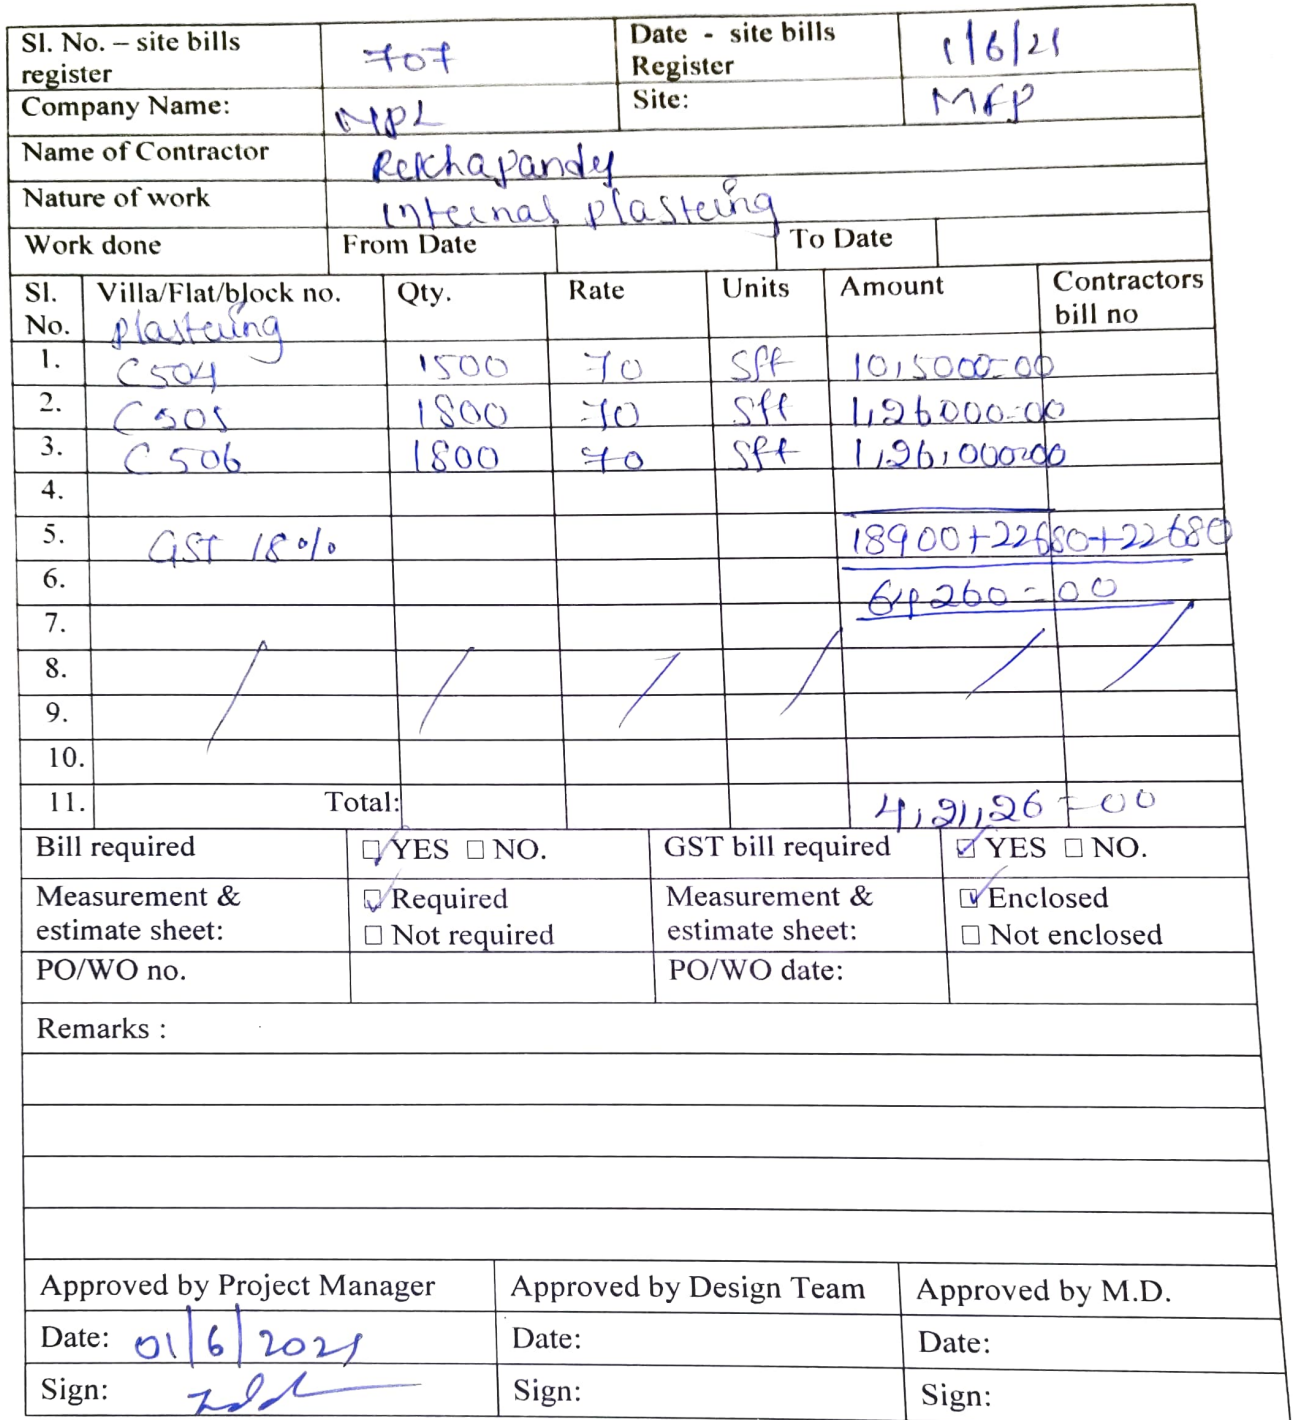 Sl. No. – site bills register 707 Date - site bills Register 1/6/21
Company Name: MPL Site: MFP
Name of Contractor Rekhapandey
Nature of work internal plasteing
Work done From Date To Date
Sl. No. Villa/Flat/block no. Qty. Rate Units Amount Contractors bill no
plasteing
1. C504 1500 70 Sft 10,5000=00
2. C505 1800 70 Sft 1,26000=00
3. C506 1800 70 Sft 1,26,000=00
4.
5. GST 18% 18900+22680+22680
6. 64260=00
7.
8.
9.
10.
11. Total: 4,21,26=00
Bill required ☑ YES ☐ NO. GST bill required ☑ YES ☐ NO.
Measurement & estimate sheet: ☑ Required Measurement & estimate sheet: ☑ Enclosed
☐ Not required ☐ Not enclosed
PO/WO no. PO/WO date:
Remarks :
Approved by Project Manager Approved by Design Team Approved by M.D.
Date: 01/6/2021 Date: Date:
Sign: Sign: Sign: